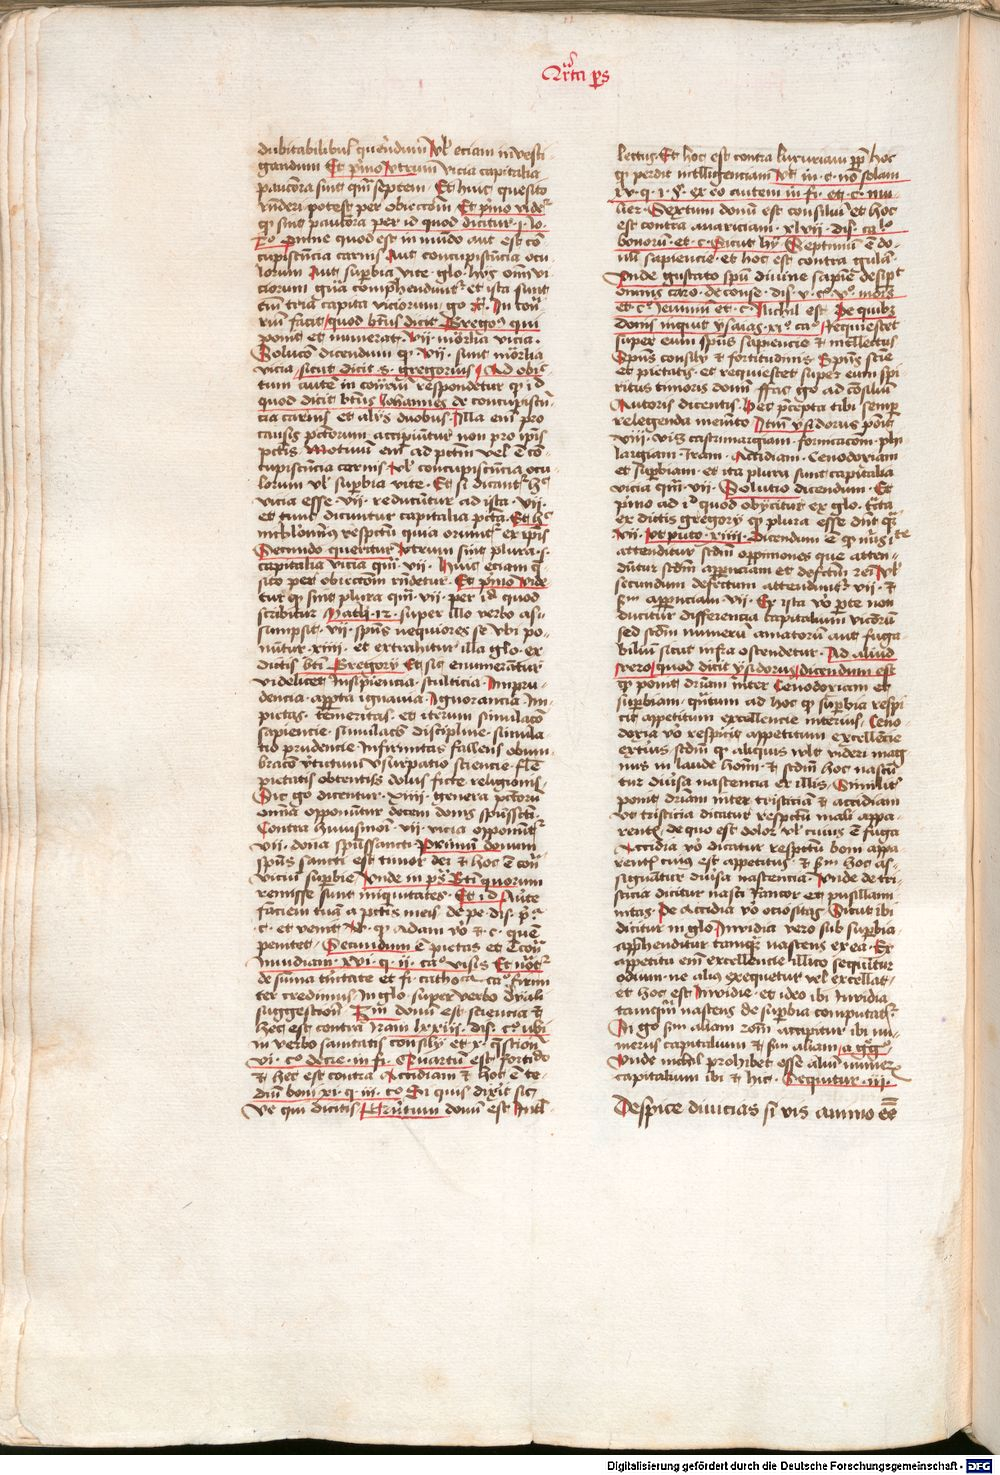 Qrta ps
dubitabilibus querendum vl eciam investi
gandum Et primo vtrum vicia capitalia
pauciora sint qm septem Et huic quesito
potest per obiectionem Et primo videtur
qd sint pauciora per id quod dicitur
Omne quod est in mundo aut est con
cupiscencia carnis Aut concupiscencia ocu
lorum Aut superbia vite
comprehenduntur et ista sunt
tria capita viciorum
facit quod dicit Gregorius qui
ponit et numerat vii mortalia vicia
dicendum qd vii sunt mortalia
vicia sicut dicit s gregorius Ad obiec
in respondetur qd id
quod dicit Iohannes de concupiscen
cia carnis et alijs duobus Illa enim pro
causis peccatorum accipiuntur non pro ipsis
peccatis Motivum enim ad peccatum vel con
cupiscencia carnis vl concupiscencia ocu
lorum vl superbia vite Et si dicantur
vicia esse vii reducuntur ad ista vii
et tunc dicuntur capitalia peccata
respectum quia oriuntur ex ipsis
Secundo queratur vtrum sint plura
capitalia vicia qm vii Huic eciam q
sito per obiectionem respondetur Et primo vide
tur qd sint plura qm vii per id quod
scribitur Math 12 super illo verbo as
sumpsit vii spiritus nequiores se vbi po
nuntur xiiii et extrahitur illa glo ex
dictis Gregorij Et sic enumerantur
videlicet Insipiencia stulticia Impru
dencia ignauia Ignorancia Im
pietas temeritas et iterum simulacio
sapiencie simulacio discipline simula
tio prudencie Infirmitas fallens obum
bracio virtutum vsurpatio sciencie
pietatis obtentus dolus ficte religionis
Sic go dicentur xiiii genera peccatorum
omnia opponuntur decem donis
Contra huiusmodi vii vicia opponuntur
vii dona spiritussancti Primum donum
spiritus sancti est timor dei et hoc est contra
vicium superbie Vnde in ps Beati quorum
remisse sunt iniquitates Et id Auerte
faciem tuam a peccatis meis de pe dis
c et venit
penitet Secundum pietas et
Inuidiam xvi q ii ca visis
de summa trinitate et fi catholica ca firmi
ter credimus In glo super verbo dyaboli
suggestione Tercium donum est sciencia et
hec est contra Iram lxxxiii dis vbi
in verbo sanitatis consilij et x question
vi c decie in fi Quartum est fortitudo
et hec est contra Accidiam et hoc te
dium boni xi q iii c
Ve qui dicitis Quintum donum est Intel
lectus Et hoc est contra luxuriam
perdit intelligenciam in c non solam
xv q i Ex eo autem in fi et c mu
lier Sextum donum est consilium et hoc
est contra auariciam xlvii dis ca
bonorum et c Sicut hij Septimum do
num sapiencie et hoc est contra gulam
Vnde gustato spiritu divine sapiencie desipit
omnis caro de conse dis v
et c Ieiunium et c Nichil est De quibus
donis inquit ysaias xi ca Requiescet
super eum spiritus sapiencie et intellectus
Spiritus consilij et fortitudinis Spiritus scie
et pietatis et requiescet super eum spi
ritus timoris domini go ad consilium
Autoris dicentis Hec precepta tibi semper
relegenda memento Item ysidorus ponit
viii castrimargiam fornicacionem phi
largiam Iram Accidiam Cenodoxiam
et superbiam et ita plura sunt capitalia
vicia qm vii Solutio dicendum Et
primo ad id quod obijcitur ex glo
ex dictis gregorij qd plura esse
vii vt puto xiiii Dicendum
attenditur secundum opposiciones que atten
duntur secundum apparenciam et defectum rei vl
secundum defectum attenduntur vii et
secundum apparenciam vii Ex ista vero parte non
ducitur differencia capitalium viciorum
sed secundum numerum amatorum aut fuga
bilium sicut infra ostendetur Ad aliud
vero quod dicit ysidorus dicendum est
qd ponit inter Cenodoxiam et
superbiam ad hoc qd superbia respi
cit appetitum excellencie interius Ceno
doxia vero respicit appetitum excellencie
exterius secundum qd aliquis vult videri mag
nus in laude hominum et secundum hoc nascun
tur diuersa nascencia ex illis Similiter
ponit inter tristiciam et accidiam
vt tristicia dicatur respectum mali appa
rentis de quo est dolor vl cuius fuga
Accidia vero dicatur respectum boni appa
rentis cuius est appetitus et secundum hoc as
signantur diuersa nascencia Vnde de tri
sticia dicitur nasci Rancor et pusillani
mitas De accidia vero ociositas Sicut ibi
dicitur in glo Inuidia vero sub superbia
apprehenditur tamquam nascens ex ea
appetitu enim excellencie illico sequitur
odium ne alius exequetur vel excellat
et hoc est Inuidie et ideo ibi Inuidia
tamquam nascens de superbia computatur
go secundum aliam accipitur ibi nu
merus capitalium et secundum aliam
Vnde nichil prohibet esse alium numerum
capitalium ibi et hic Sequitur iii
Despice diuicias si vis animo esse
Digitalisierung gefördert durch die Deutsche Forschungsgemeinschaft - DFG